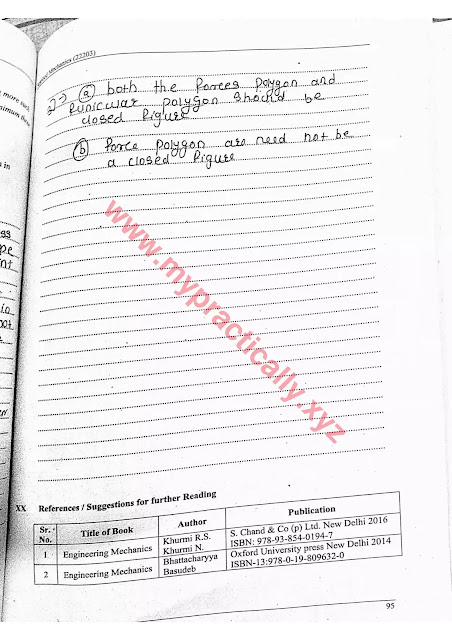 Mechanics (22203)
2) (a) both the forces polygon and
Funicular polygon should be
closed figure
(b) Force polygon are need not be
a closed figure
www.mypractically.xyz
XX References / Suggestions for further Reading
Sr. No. Title of Book Author Publication
1 Engineering Mechanics Khurmi R.S. Khurmi N. S. Chand & Co (p) Ltd. New Delhi 2016 ISBN: 978-93-854-0194-7
2 Engineering Mechanics Bhattacharyya Basudeb Oxford University press New Delhi 2014 ISBN-13:978-0-19-809632-0
95